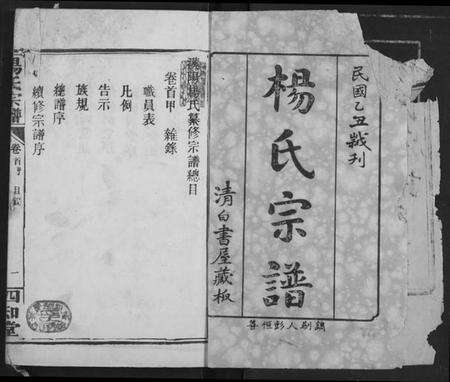 民國乙丑裁刊
楊氏宗譜
清白書屋藏板
鐫刻人彭恒善
楊氏纂修宗譜總目
卷首甲 雜錄
職員表
凡例
告示
族規
總譜序
續修宗譜序
楊氏宗譜
卷首甲 目錄
一
四知堂